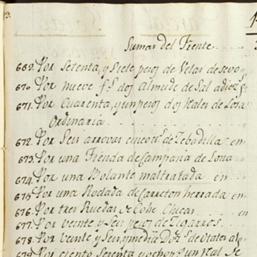 Sumas del frente
669. Por Setenta, y Siete pesos de Velas de sevo
670. Por nueve p.s dos almudes de Sal adiez
671. Por Cuarenta, y un pesos dos reales de Lona
Ordinaria
672. Por Seis arrovas de Zebadilla en
673. Por una Tienda de Campaña de Lona
674. Por un Bolante maltratado en
675. Por una Rodada de Carreton herrada en
676. Por tres Ruedas de Cohe Chicas en
677. Por veinte y Seis pesos de Zigarros
678. Por veinte y Seis
679. Por ciento Setenta y ocho p.s un real de